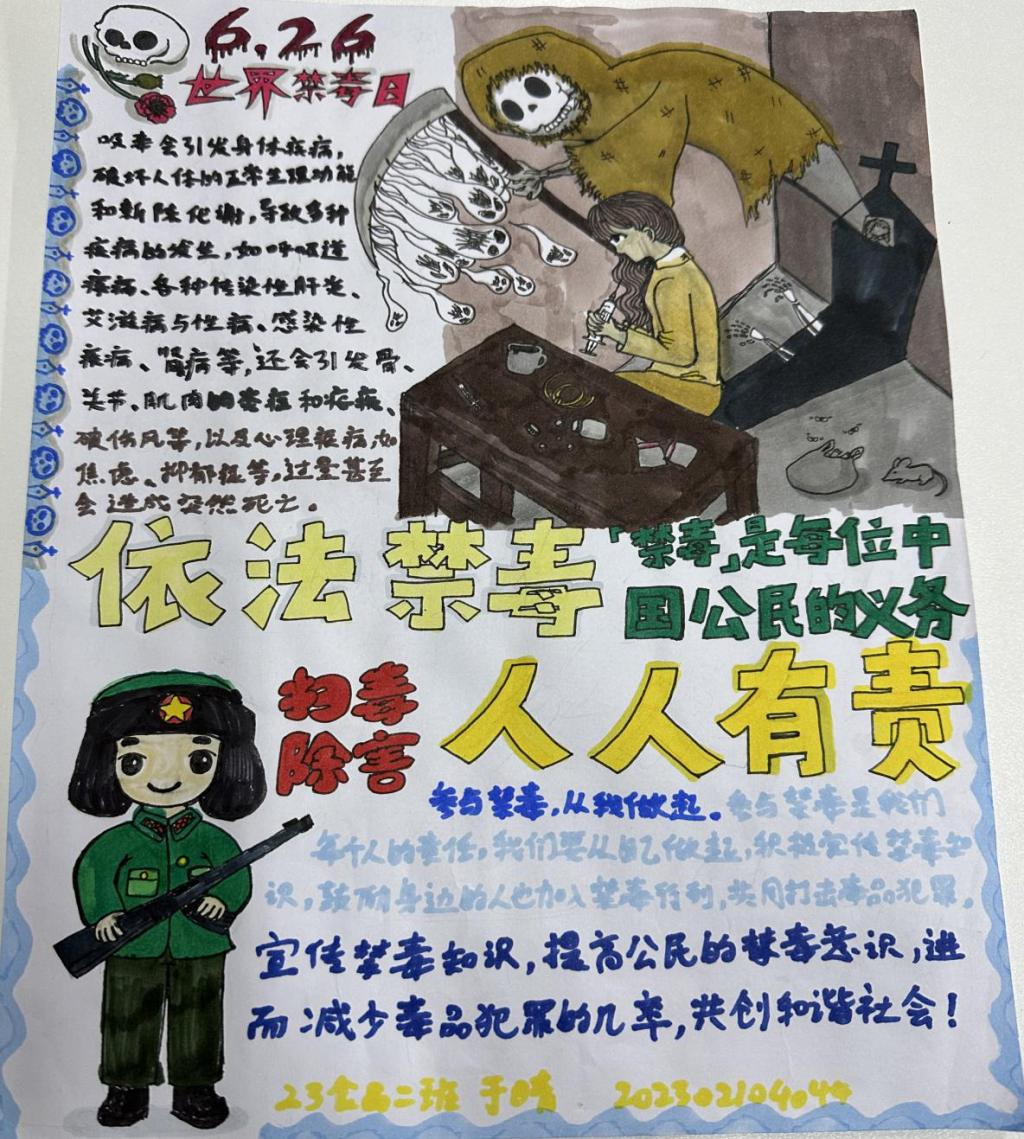 6.26
世界禁毒日
吸毒会引发身体疾病，
破坏人体的正常生理功能
和新陈代谢，导致多种
疾病的发生，如呼吸道
疾病、各种传染性肝炎、
艾滋病与性病、感染性
疾病、肾病等，还会引发骨、
关节、肌肉的
破伤风等，以及心理疾病，如
焦虑、抑郁症等，过量甚至
会造成突然死亡。
依法禁毒
「禁毒」是每位中
国公民的义务
扫毒
除害
人人有责
参与禁毒，从我做起。参与禁毒是我们
每个人的责任，我们要从自己做起，积极宣传禁毒知
识，鼓励身边的人也加入禁毒行列，共同打击毒品犯罪。
宣传禁毒知识，提高公民的禁毒意识，进
而减少毒品犯罪的几率，共创和谐社会！
23食品二班 于晴 20230210404